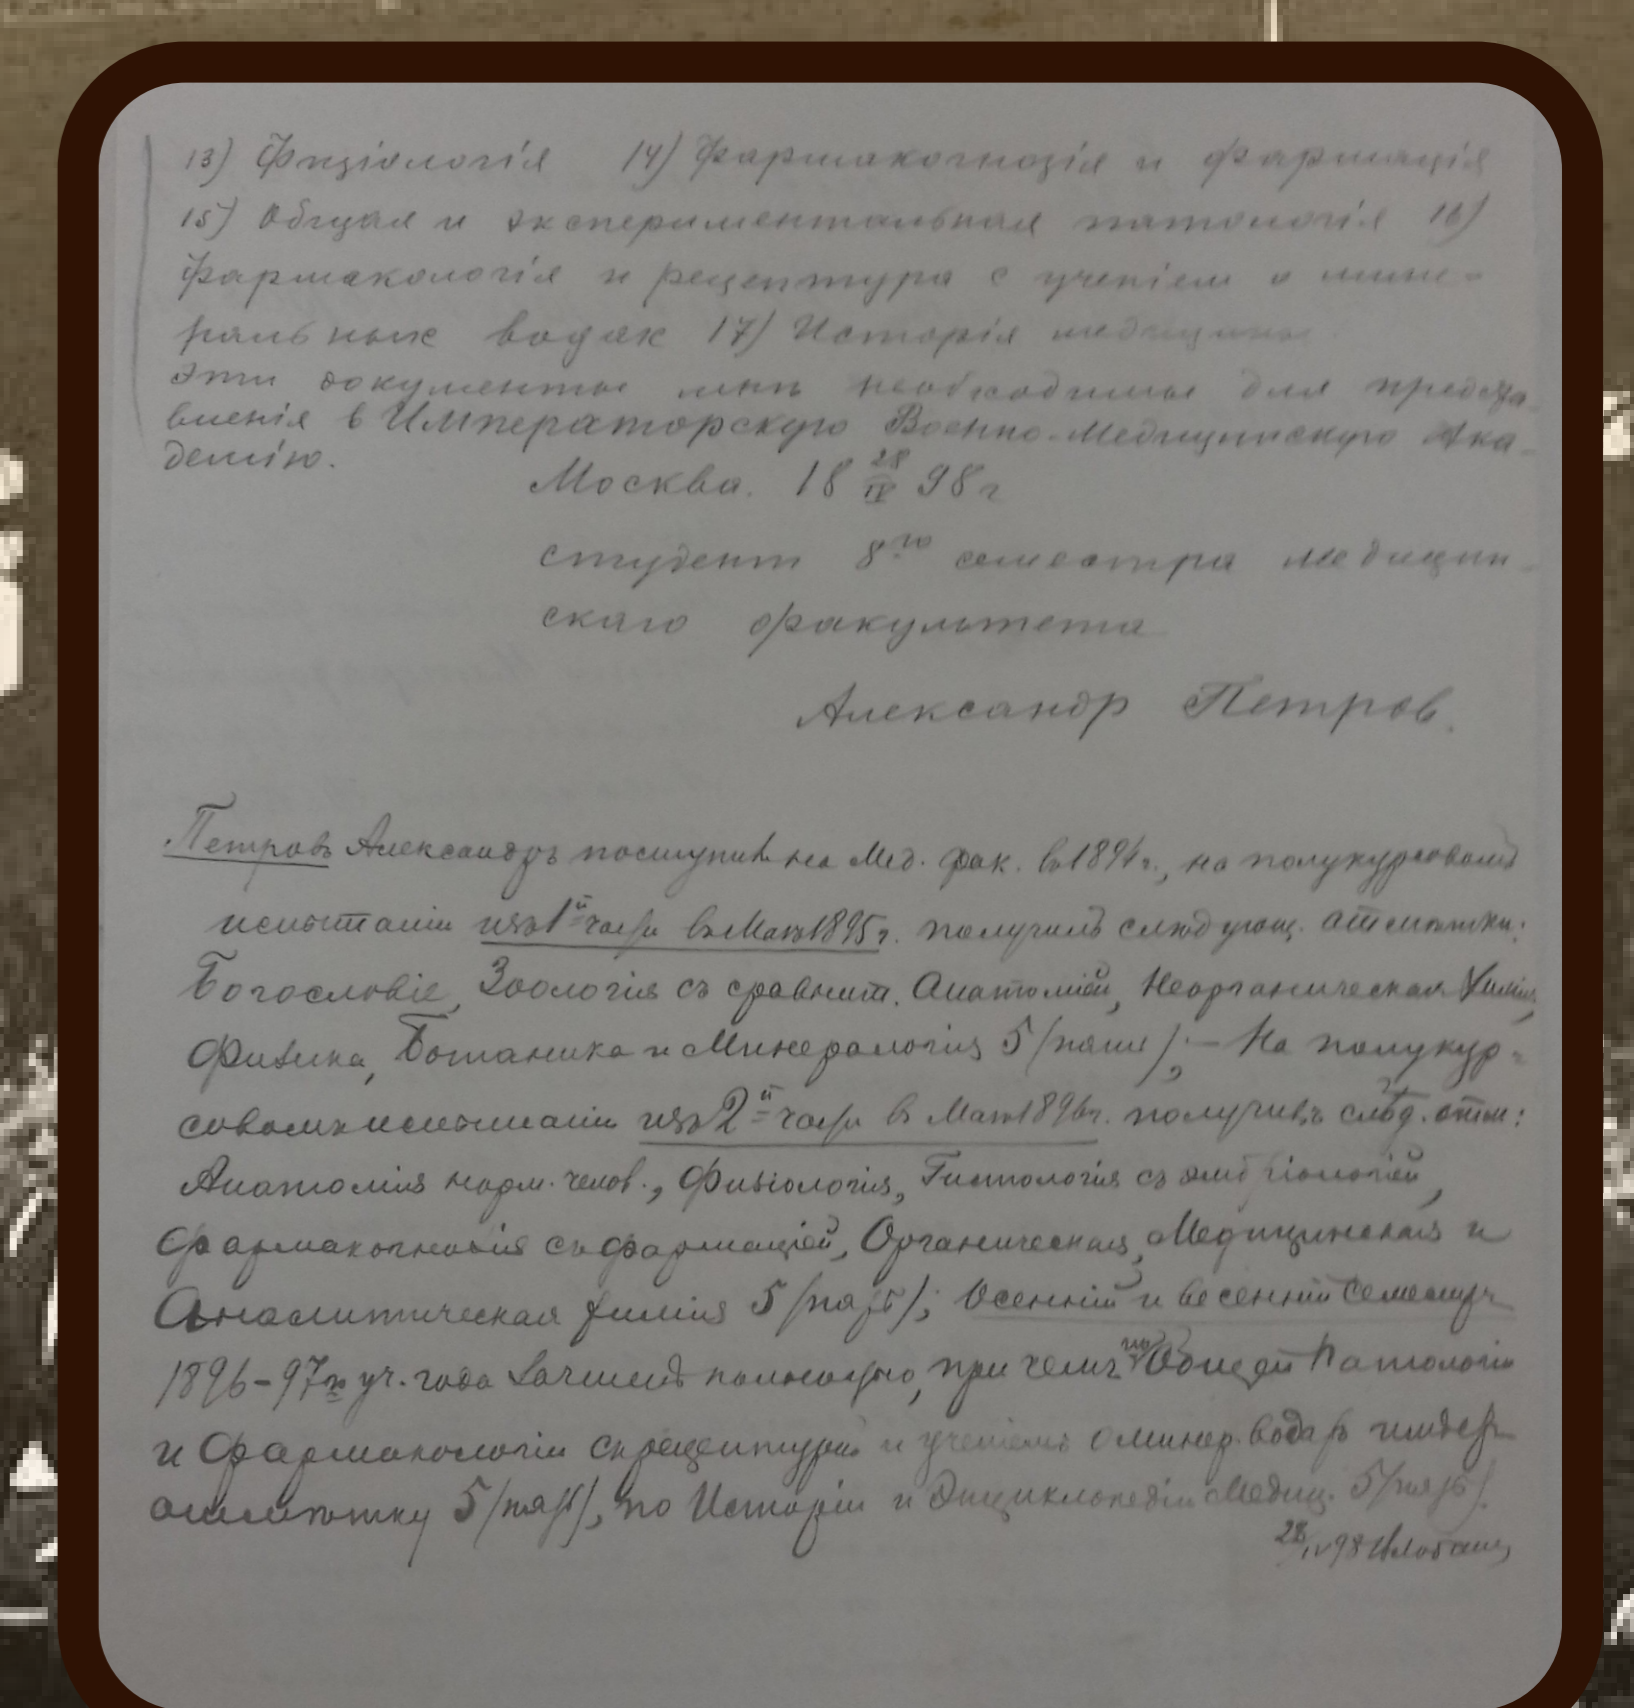 13) Физіологія 14) Фармакогнозія и фармація
15) Общая и экспериментальная патологія 16)
Фармакологія и рецептура с ученіем о мине-
ральных водах 17) Исторія медицины.
Эти документы мнѣ необходимы для предста-
вленія в Императорскую Военно-Медицинскую Ака-
демію.
Москва. 18 28/IV 98 г
студент 8го семестра медицин-
скаго факультета
Александр Петров.
Петровъ Александръ поступилъ на Мед. фак. въ 1894 г., на полукурсовомъ
испытаніи изъ 1й части въ Маѣ 1895 г. получилъ слѣдующ. отмѣтки:
Богословіе, Зоологія съ сравнит. Анатоміей, Неорганическая Химія,
Физика, Ботаника и Минералогія 5 /пять/; — На полукур-
совомъ испытаніи изъ 2й части въ Маѣ 1896 г. получилъ слѣд. отм:
Анатомія норм. челов., Физіологія, Гистологія съ эмбріологіей,
Фармакогнозія съ фармаціей, Органическая, Медицинская и
Аналитическая химія 5 /пять/; Осенній и весенній семестръ
1896-97го уч. года зачтенъ полностью, при чемъ по Общей Патологіи
и Фармакологіи съ рецептурой и ученіемъ о минер. водахъ имѣетъ
отмѣтку 5 /пять/, по Исторіи и Энциклопедіи Медиц. 5 /пять/.
28/IV 98